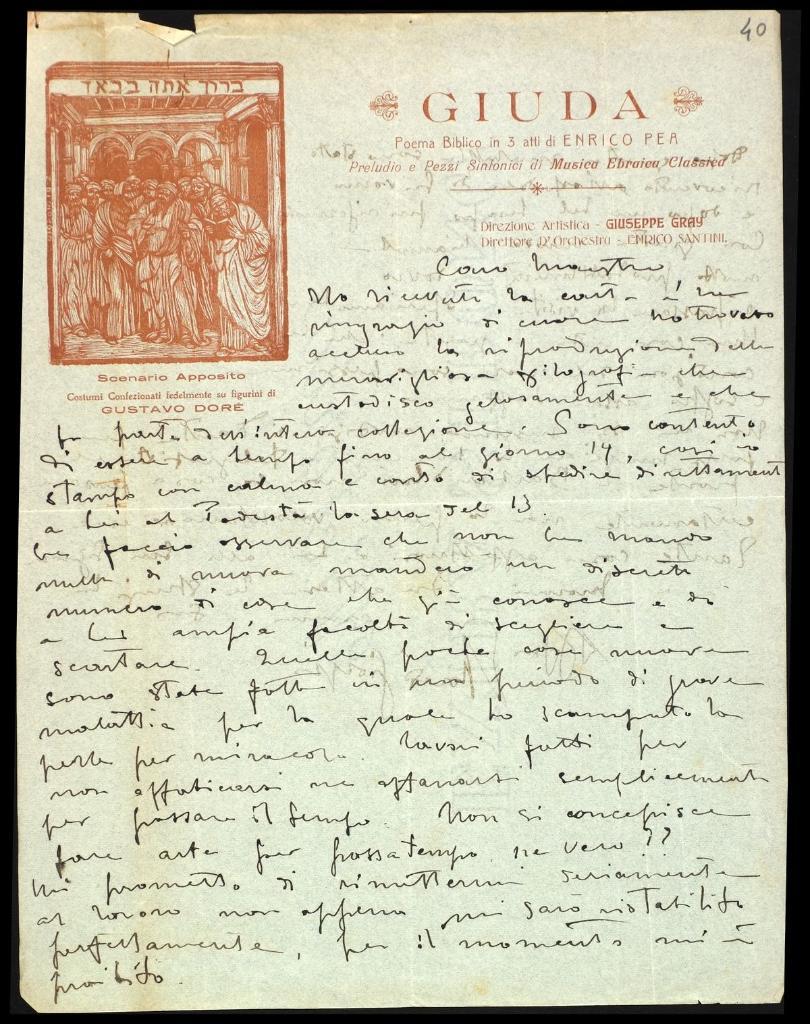 40
ברוך אתה בבאך
GIUDA
Poema Biblico in 3 atti di ENRICO PEA
Preludio e Pezzi Sinfonici di Musica Ebraica Classica
Direzione Artistica - GIUSEPPE GRAY
Direttore D'Orchestra - ENRICO SANTINI.
Scenario Apposito
Costumi Confezionati fedelmente su figurini di
GUSTAVO DORÉ
Caro Maestro
Ho ricevuto la carta e ne
ringrazio di cuore ho trovato
accluso la riproduzione della
meravigliosa xilografia che
custodisco gelosamente e che
fa parte dell'intera collezione. Sono contento
di essere a tempo fino al giorno 14, così io
stampo con calma e conto di spedire direttamente
a Lei al Podestà la sera del 13.
Le faccio osservare che non le mando
nulla di nuovo manderò un discreto
numero di cose che già conosce e dò
a Lei ampia facoltà di scegliere e
scartare. Quelle poche cose nuove
sono state fatte in un periodo di grave
malattia per la quale ho scampato la
pelle per miracolo. Lavori fatti per
non affaticarsi ne affannarsi semplicemente
per passare il tempo. Non si concepisce
fare arte per passatempo, ne vero??
Mi prometto di rimettermi seriamente
al lavoro non appena mi sarò ristabilito
perfettamente, per il momento mi è
proibito.